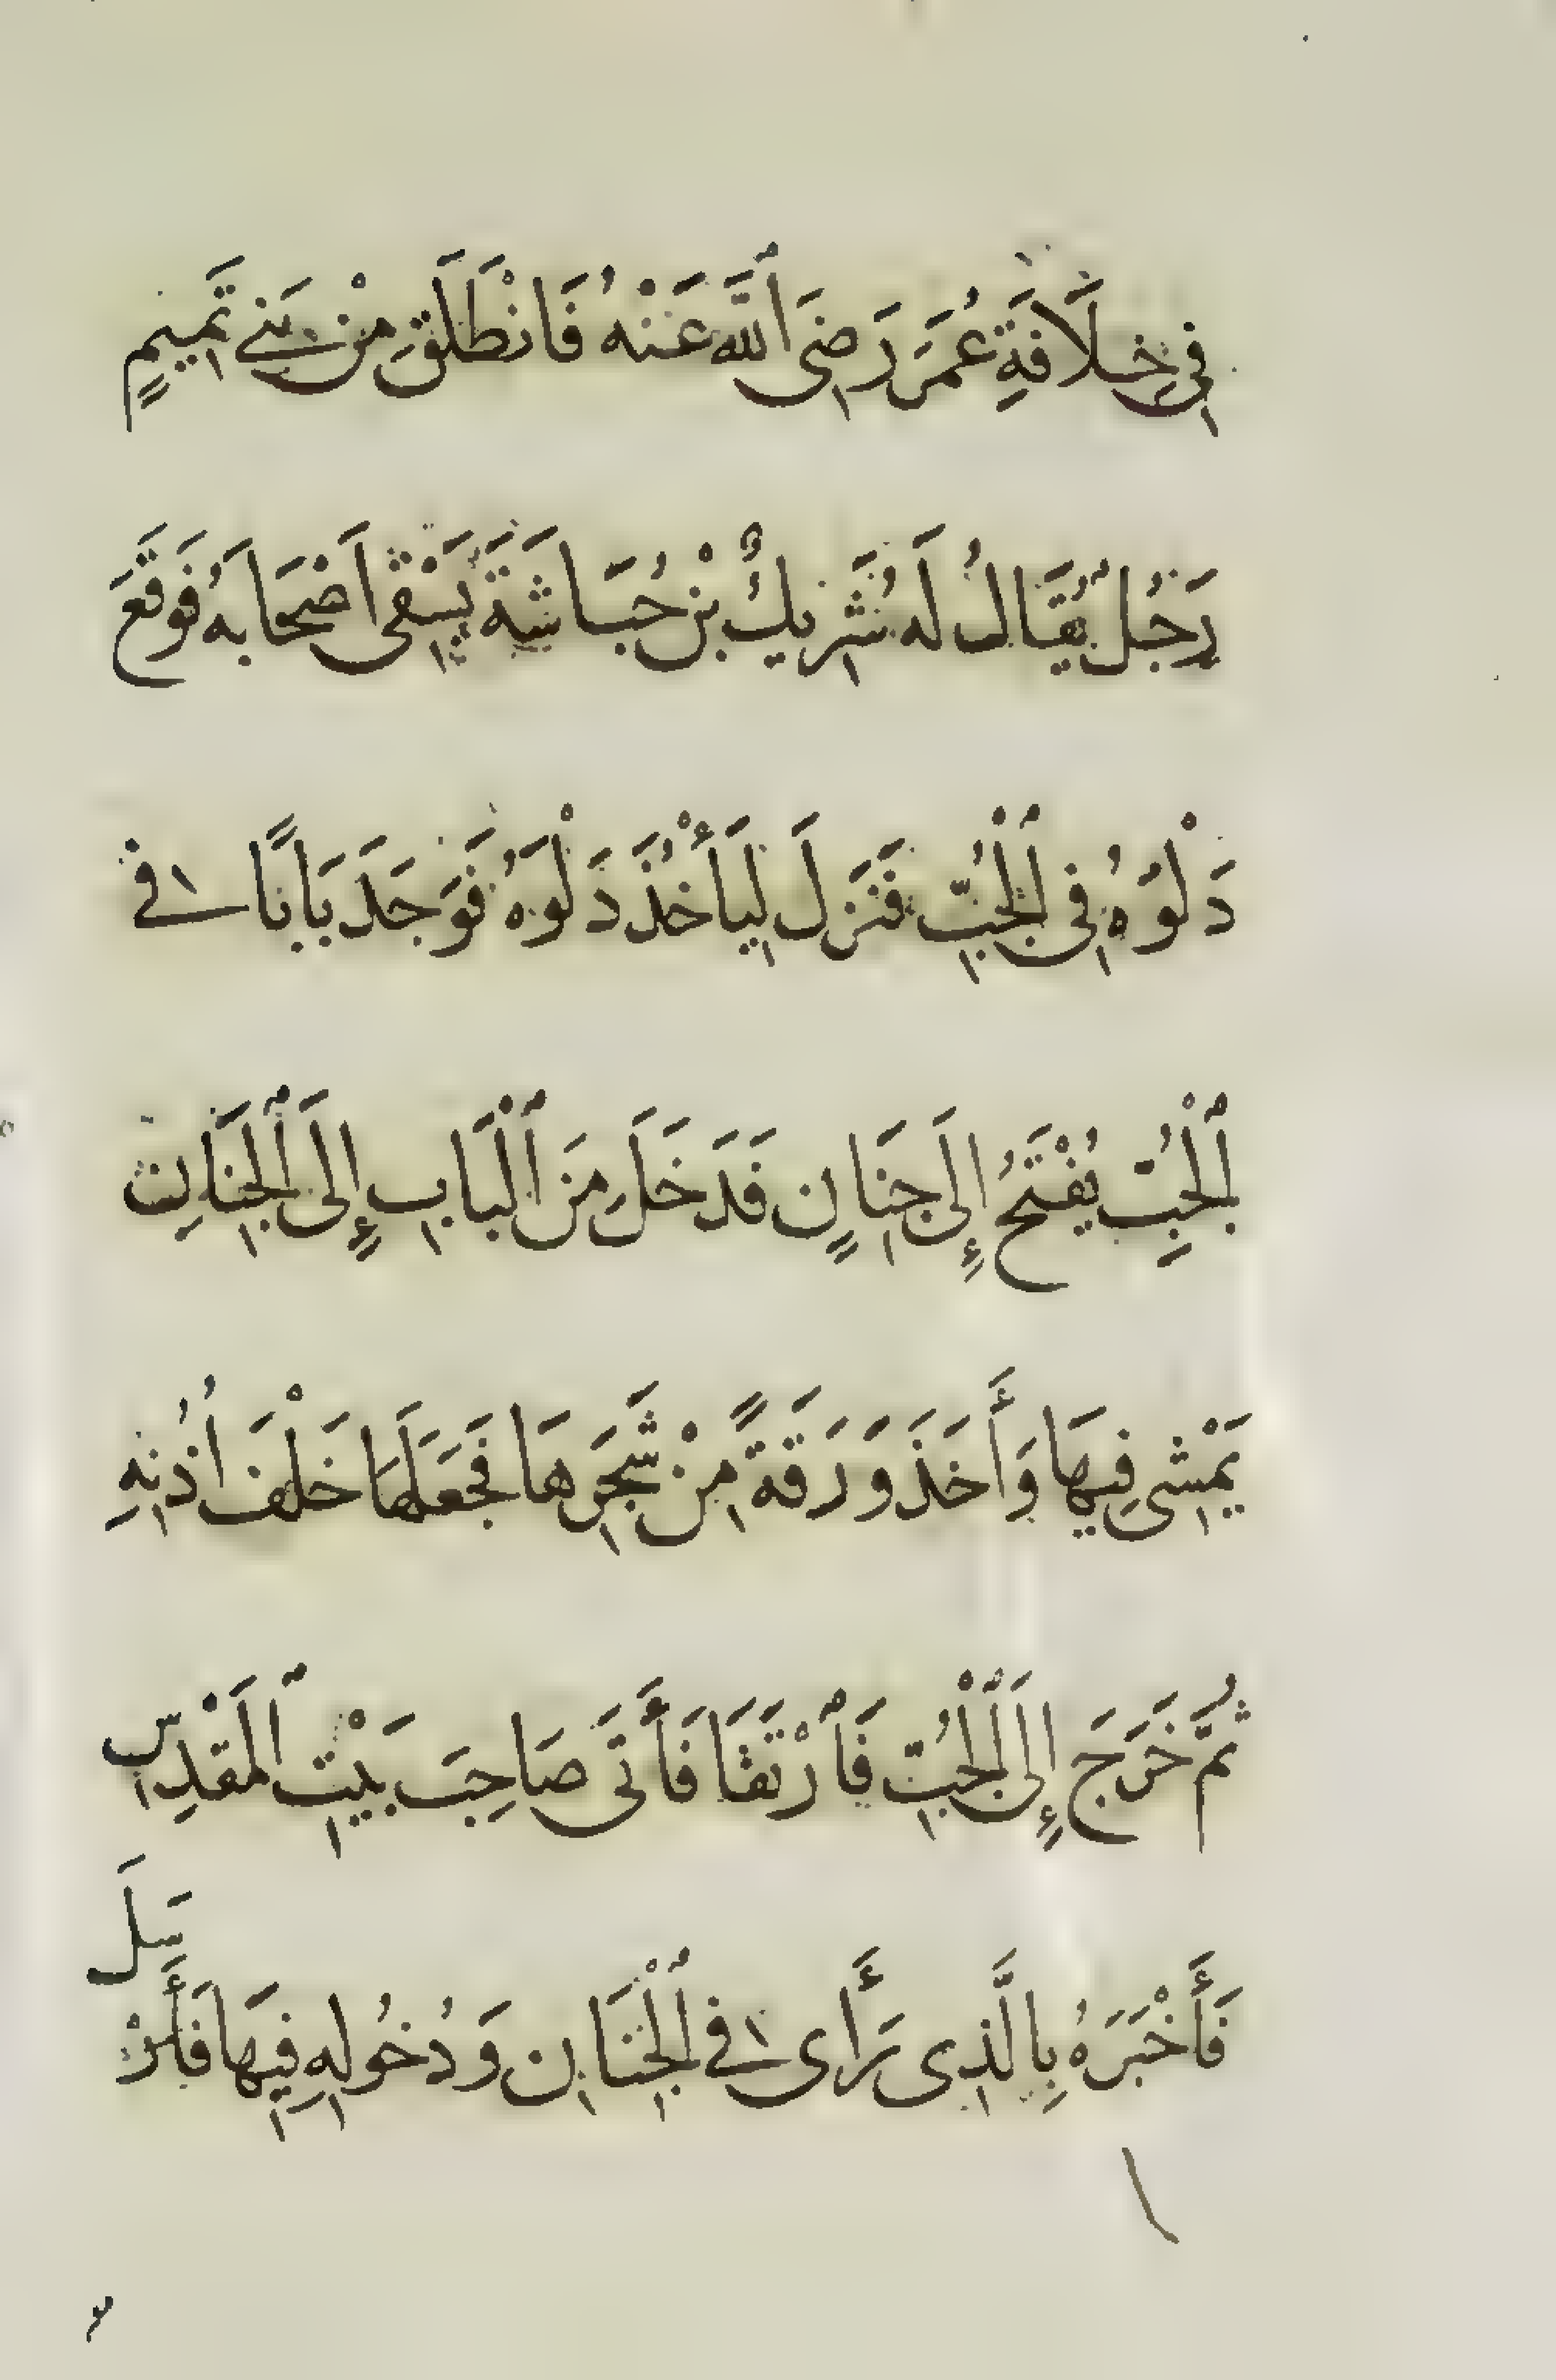 فِى خِلَافَةِ عُمَرَ رَضِىَ ٱللَّه عَنْهُ فَانْطَلَقَ مِنْ بَنِى تَمِيمٍ
رَجُلٌ يُقَالُ لَهُ شَرِيكُ بْنُ حُبَاشَةَ يَسْقِى اَصْحَابَهُ فَوَقَعَ
دَلْوُهُ فِى ٱلْجُبِّ فَنَزَلَ لِيَأْخُذَ دَلْوَهُ فَوَجَدَ بَابًا فِى
ٱلْجُبِّ يُفْتَحُ إِلَى جِنَانٍ فَدَخَلَ مِنَ ٱلْبَابِ إِلَى ٱلْجِنَانِ
يَمْشِى فِيهَا وَأَخَذَ وَرَقَةً مِنْ شَجَرِهَا فَجَعَلَهَا خَلْفَ اُذُنِهِ
ثُمَّ خَرَجَ إِلَى ٱلْجُبِّ فَٱرْتَقَا فَأَتَى صَاحِبَ بَيْتِ ٱلْمَقْدِسِ
فَأَخْبَرَهُ بِالَّذِى رَأَى فِى ٱلْجِنَانِ وَدُخُولِهِ فِيهَا فَأَرْسَلَ
٣